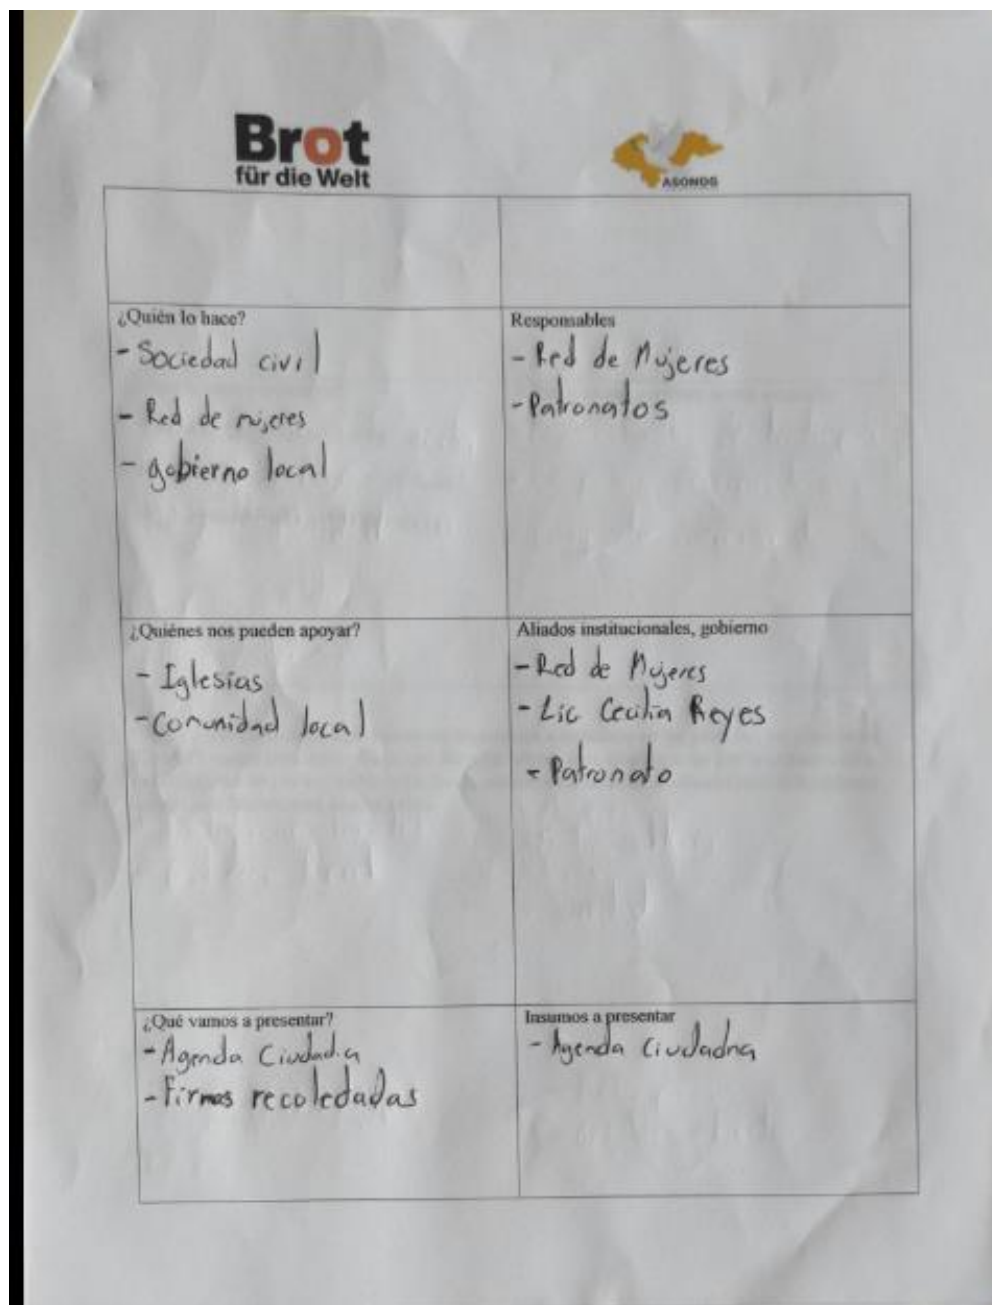 Brot
für die Welt
ASONOG
¿Quién lo hace?
- Sociedad civil
- Red de mujeres
- gobierno local
Responsables
- Red de Mujeres
- Patronatos
¿Quiénes nos pueden apoyar?
- Iglesias
- Comunidad local
Aliados institucionales, gobierno
- Red de Mujeres
- Lic Cecilia Reyes
- Patronato
¿Qué vamos a presentar?
- Agenda Ciudadia
- Firmas recoledadas
Insumos a presentar
- Agenda Ciudadna